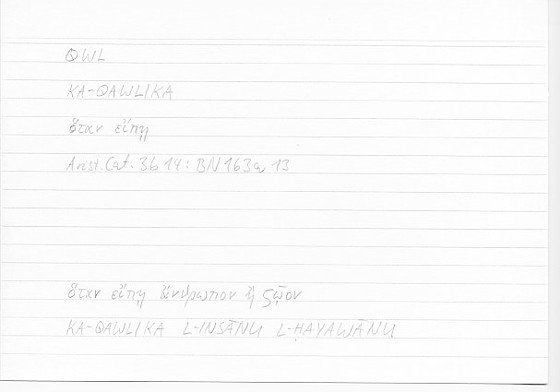 QWL
KA-QAWLIKA
ὅταν εἴπῃ
Arist. Cat. 3b 14 : BN 163a, 13
ὅταν εἴπῃ ἄνθρωπον ἢ ζῷον
KA-QAWLIKA L-INSĀNU L-ḤAYAWĀNU